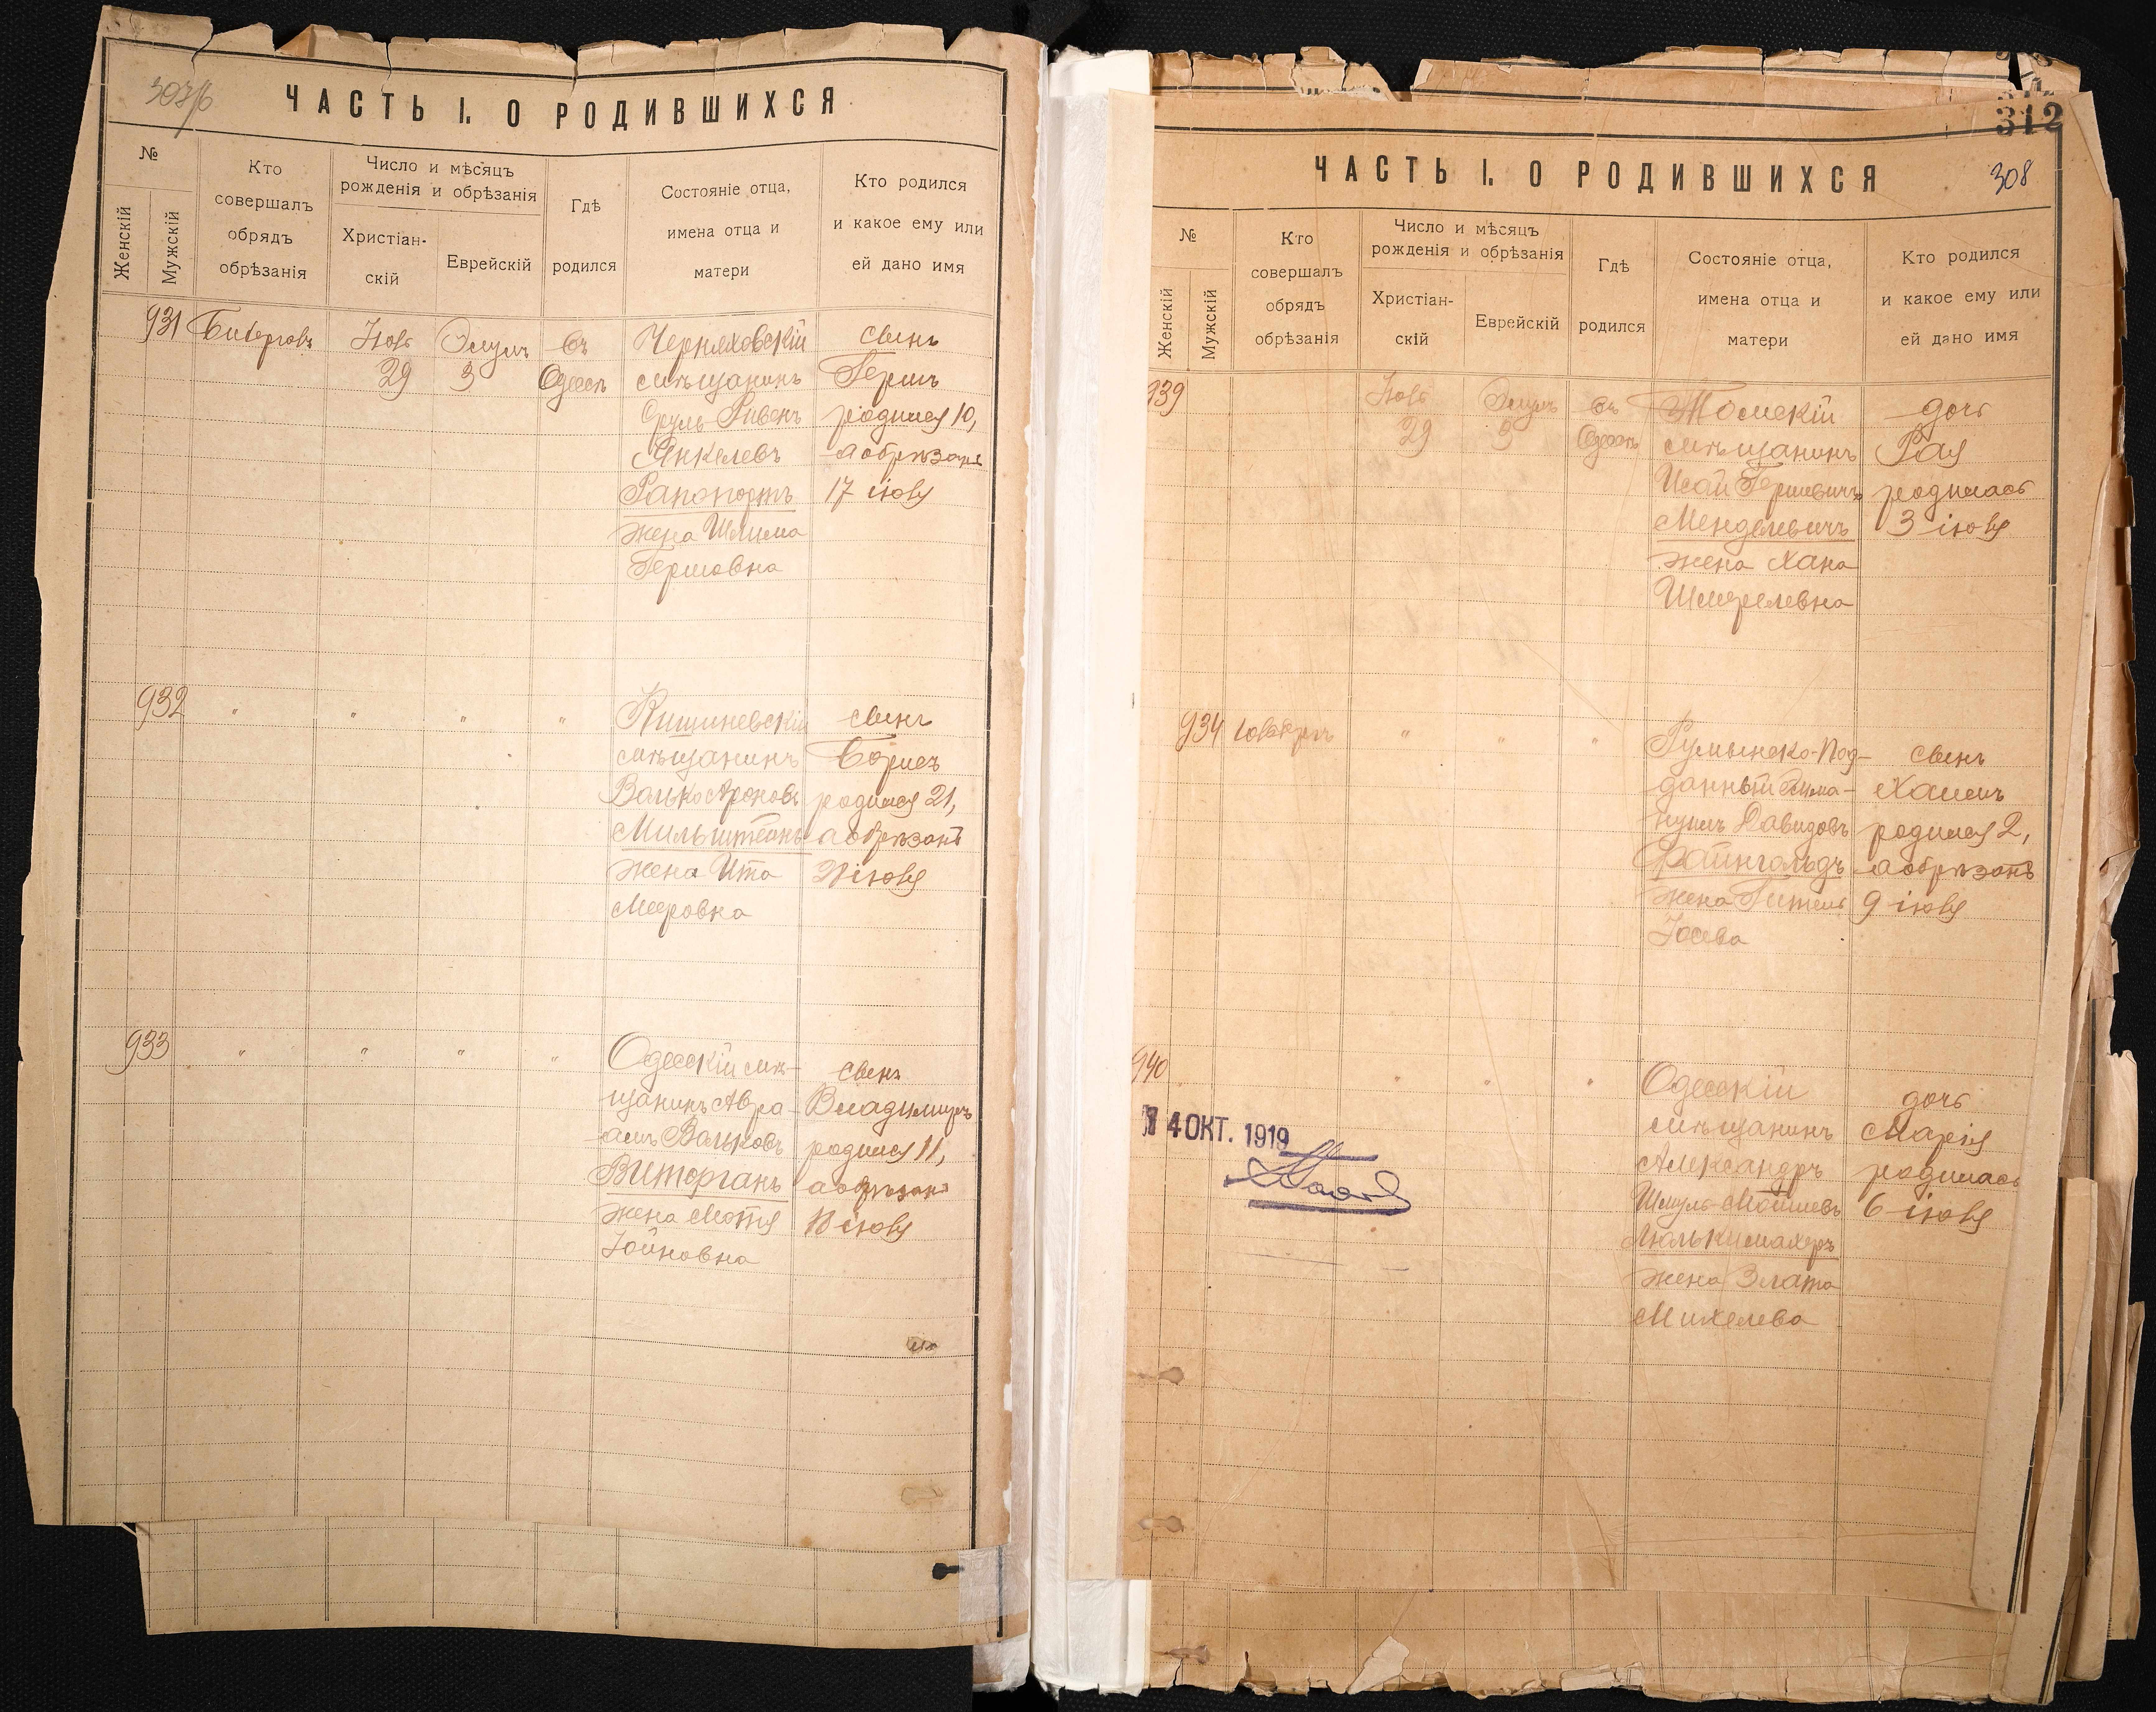 307/б
ЧАСТЬ I. О РОДИВШИХСЯ
№
Женскій
Мужскій
Кто
совершалъ
обрядъ
обрѣзанія
Число и мѣсяцъ
рожденія и обрѣзанія
Христіан-
скій
Еврейскій
Гдѣ
родился
Состояніе отца,
имена отца и
матери
Кто родился
и какое ему или
ей дано имя
931
29
3
въ
Одессѣ
Черняховскій
мѣщанинъ
Сруль Ривенъ
Янкелевъ
Рапопортъ
жена Шлима
Гершовна
сынъ
Гершъ
родился 10,
а обрѣзанъ
17 іюля
932
" " " "
Кишиневскій
мѣщанинъ
Волько Ароновъ
Мильштейнъ
жена Ита
Мееровна
сынъ
Борисъ
родился 21,
а обрѣзанъ
іюля
933
" " " "
Одесскій мѣ-
щанинъ Авра-
амъ Вольковъ
Виторганъ
жена Мотя
Іойновна
сынъ
Владимиръ
родился 11,
а обрѣзанъ
18 іюля
312
308
ЧАСТЬ I. О РОДИВШИХСЯ
№
Женскій
Мужскій
Кто
совершалъ
обрядъ
обрѣзанія
Число и мѣсяцъ
рожденія и обрѣзанія
Христіан-
скій
Еврейскій
Гдѣ
родился
Состояніе отца,
имена отца и
матери
Кто родился
и какое ему или
ей дано имя
939
29
3
въ
Одессѣ
Томскій
мѣщанинъ
Исай Гершевичъ
Менделевичъ
жена Хана
Шмерелевна
дочь
Рая
родилась
3 іюля
934
" " "
Румынско-Под-
данный
Давидовъ
Файнгольдъ
жена Гитель
Іосева
сынъ
Хаимъ
родился 2,
а обрѣзанъ
9 іюля
940
" " "
Одесскій
мѣщанинъ
Александръ
Шмуль-Мойшевъ
Люлькимахеръ
жена Злата
Михелева
дочь
Марія
родилась
6 іюля
4 ОКТ. 1919